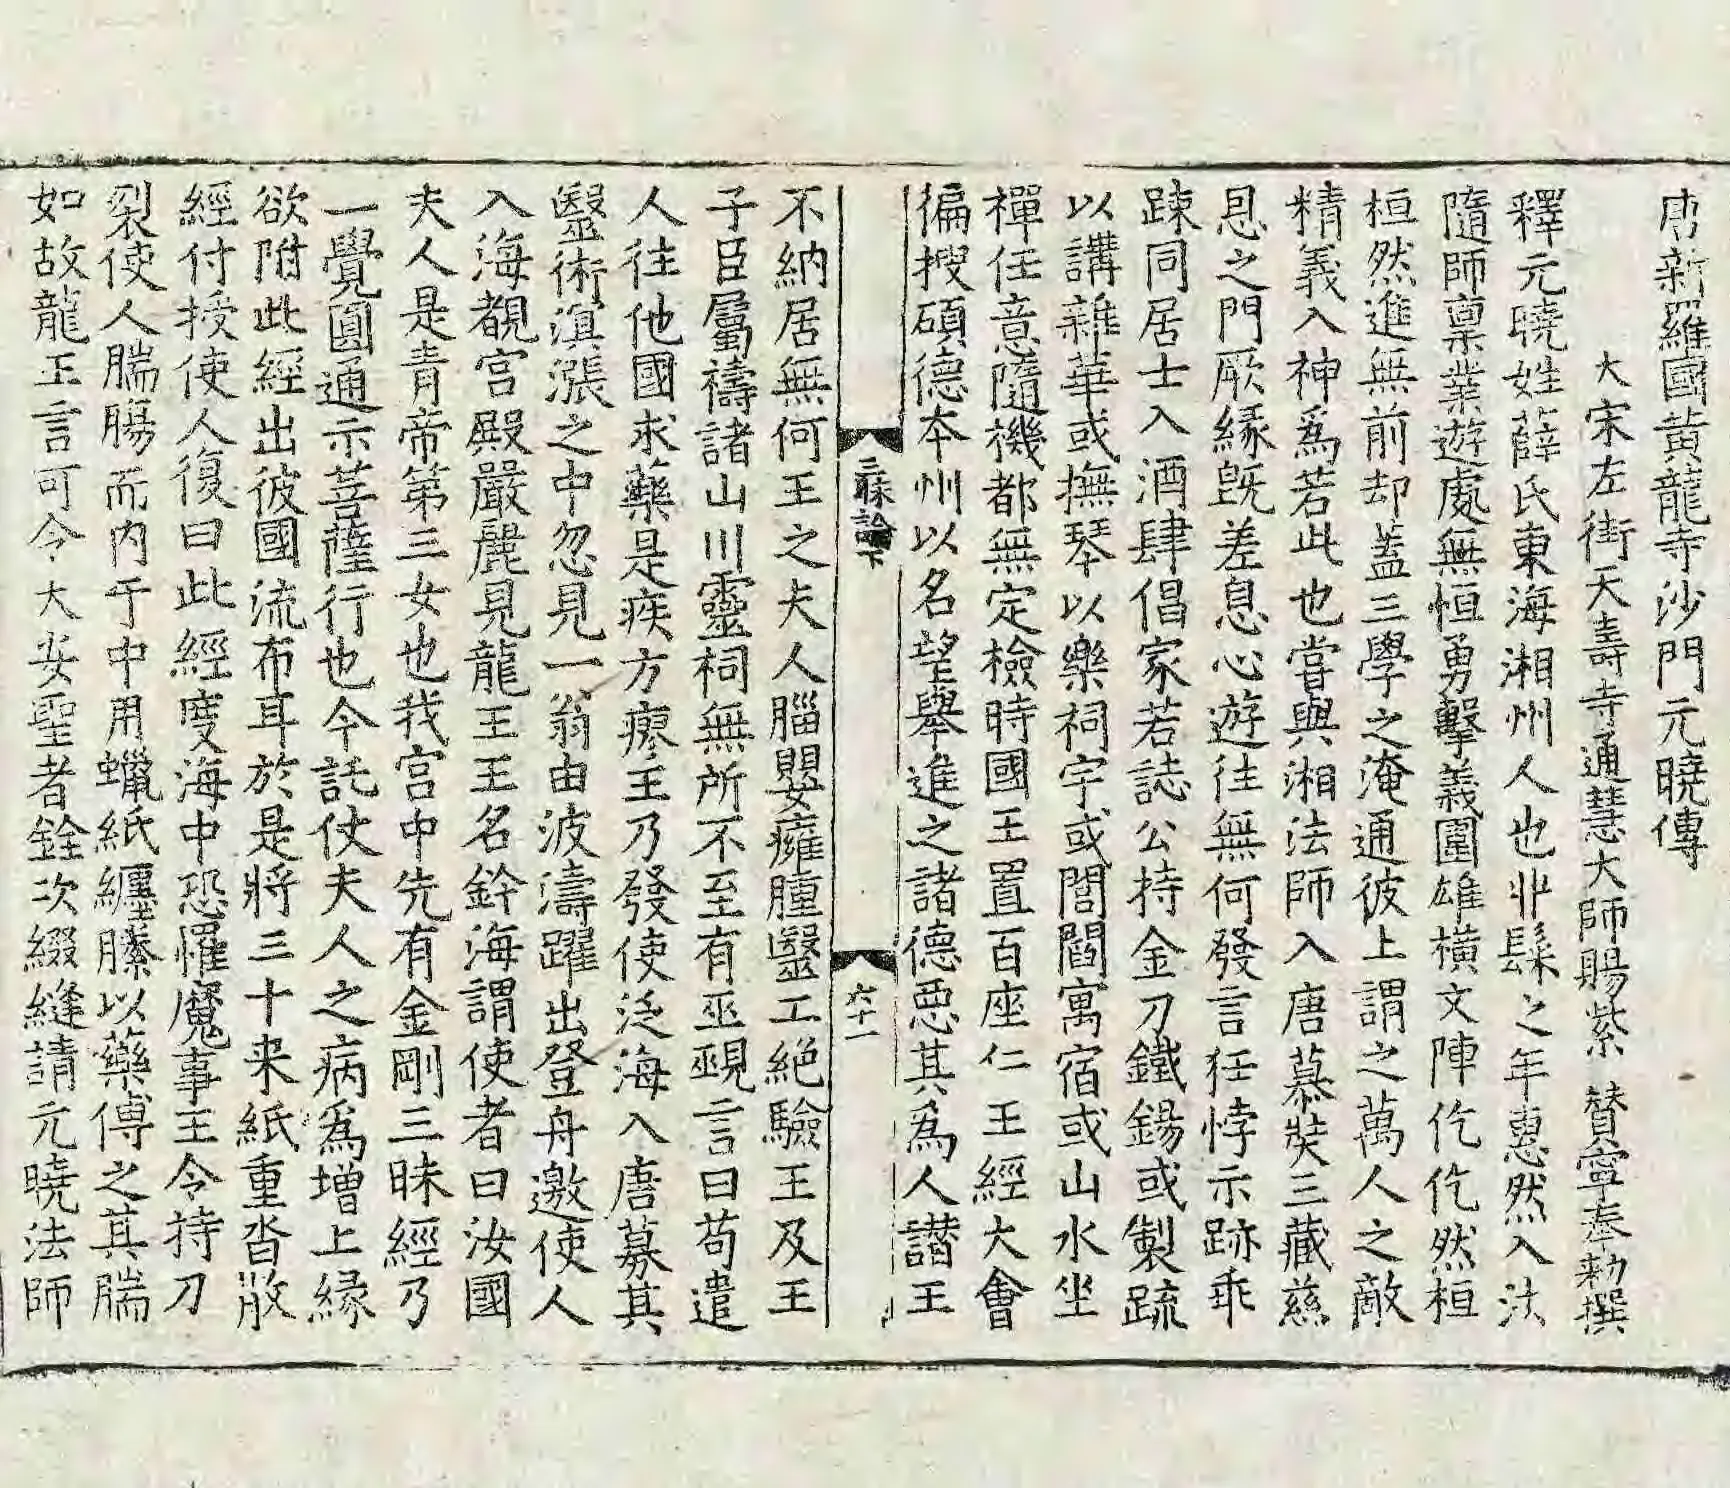 唐新羅國黃龍寺沙門元曉傳
大宋左街天壽寺通慧大師賜紫 賛寧奉勑撰
釋元曉姓薛氏東海湘州人也丱髮之年惠然入法
隨師禀業遊處無恒勇擊義圍雄橫文陣仡仡然桓
桓然進無前却盖三學之淹通彼上謂之萬人之敵
精義入神爲若此也甞與湘法師入唐慕奘三藏慈
恩之門厥緣旣差息心遊往無何發言狂悖示跡乖
踈同居士入酒肆倡家若誌公持金刀鐵錫或製疏
以講雜華或撫琴以樂祠宇或閭閻寓宿或山水坐
禪任意隨機都無定檢時國王置百座仁王經大會
徧搜碩德本州以名望擧進之諸德惡其爲人譖王
三昧論下
六十一
不納居無何王之夫人腦嬰癰腫毉工絕驗王及王
子臣屬禱諸山川靈祠無所不至有巫覡言曰苟遣
人往他國求藥是疾方瘳王乃發使泛海入唐募其
毉術溟漲之中忽見一翁由波濤躍出登舟邀使人
入海覩宮殿嚴麗見龍王王名鈐海謂使者曰汝國
夫人是青帝第三女也我宮中先有金剛三昧經乃
一覺圓通示菩薩行也今託仗夫人之病爲增上緣
欲附此經出彼國流布耳於是將三十来紙重沓散
經付授使人復曰此經度海中恐罹魔事王令持刀
裂使人腨膓而內于中用蠟紙纏縢以藥傅之其腨
如故龍王言可令大安聖者銓次綴縫請元曉法師